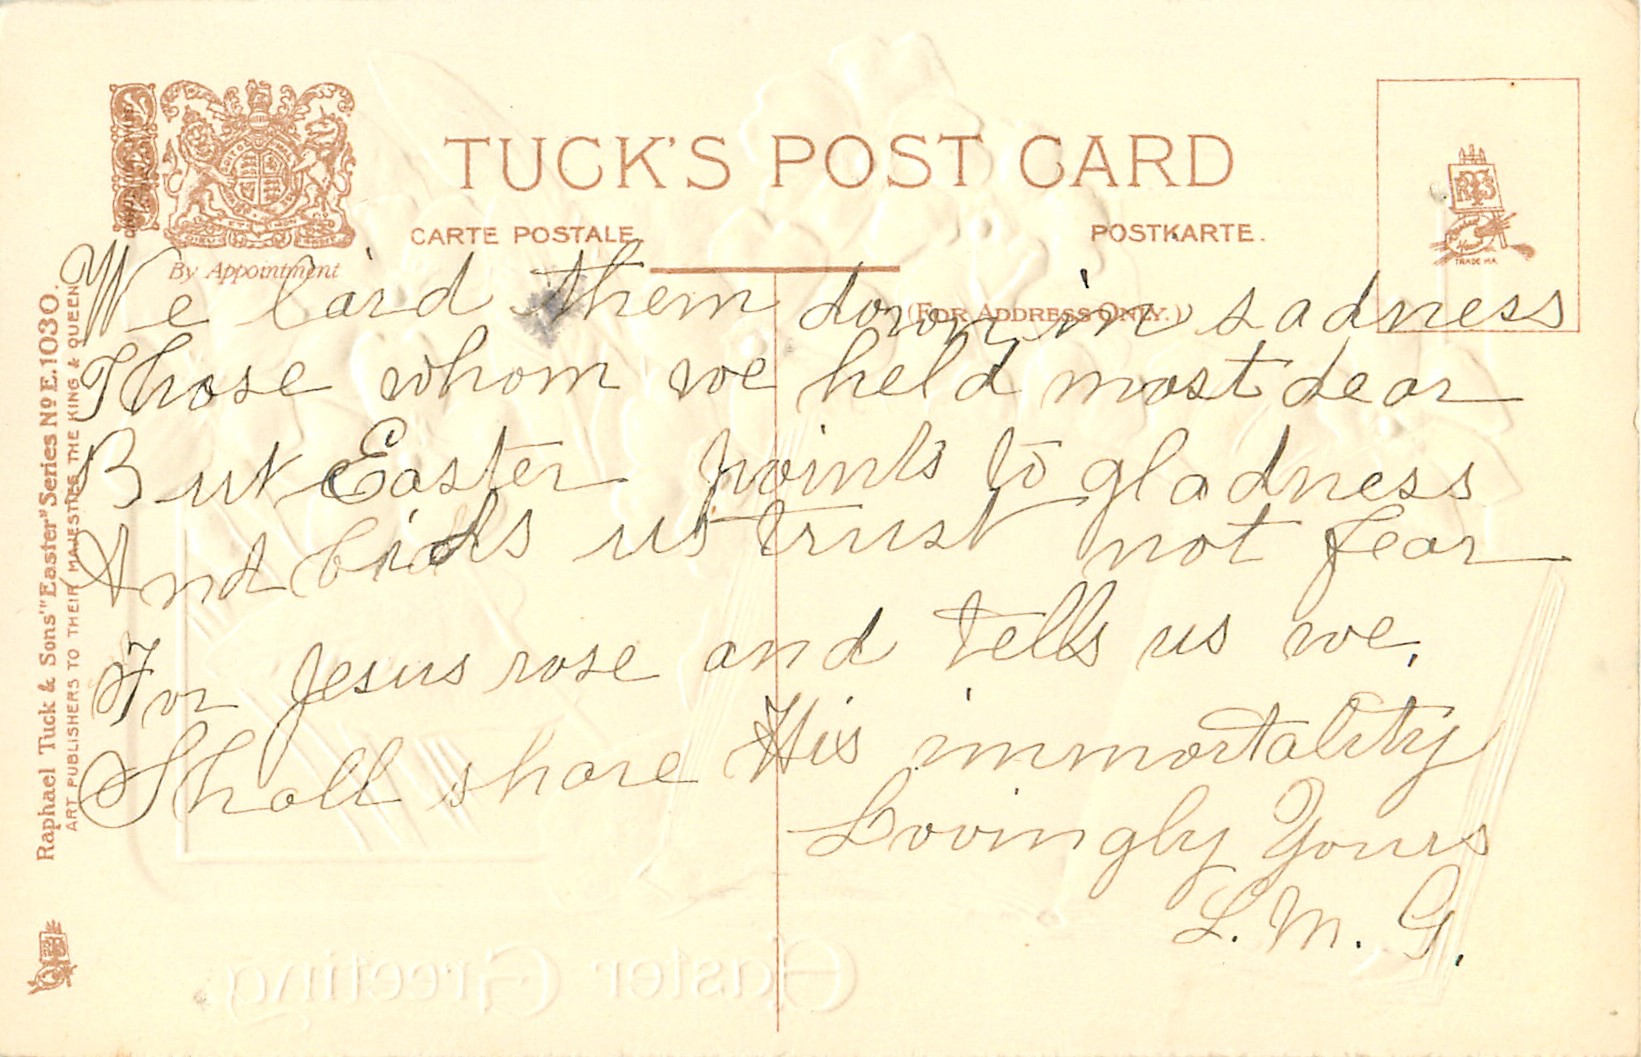 TUCK'S POST CARD
CARTE POSTALE.
POSTKARTE.
By Appointment
(FOR ADDRESS ONLY.)
TRADE MARK
Raphael Tuck & Sons' "Easter" Series No E. 1030.
ART PUBLISHERS TO THEIR MAJESTIES THE KING & QUEEN
We laid them down in sadness
Those whom we held most dear
But Easter points to gladness
And bids us trust not fear
For Jesus rose and tells us we,
Shall share His immortality
Lovingly Yours
L. M. G.
Easter Greeting.